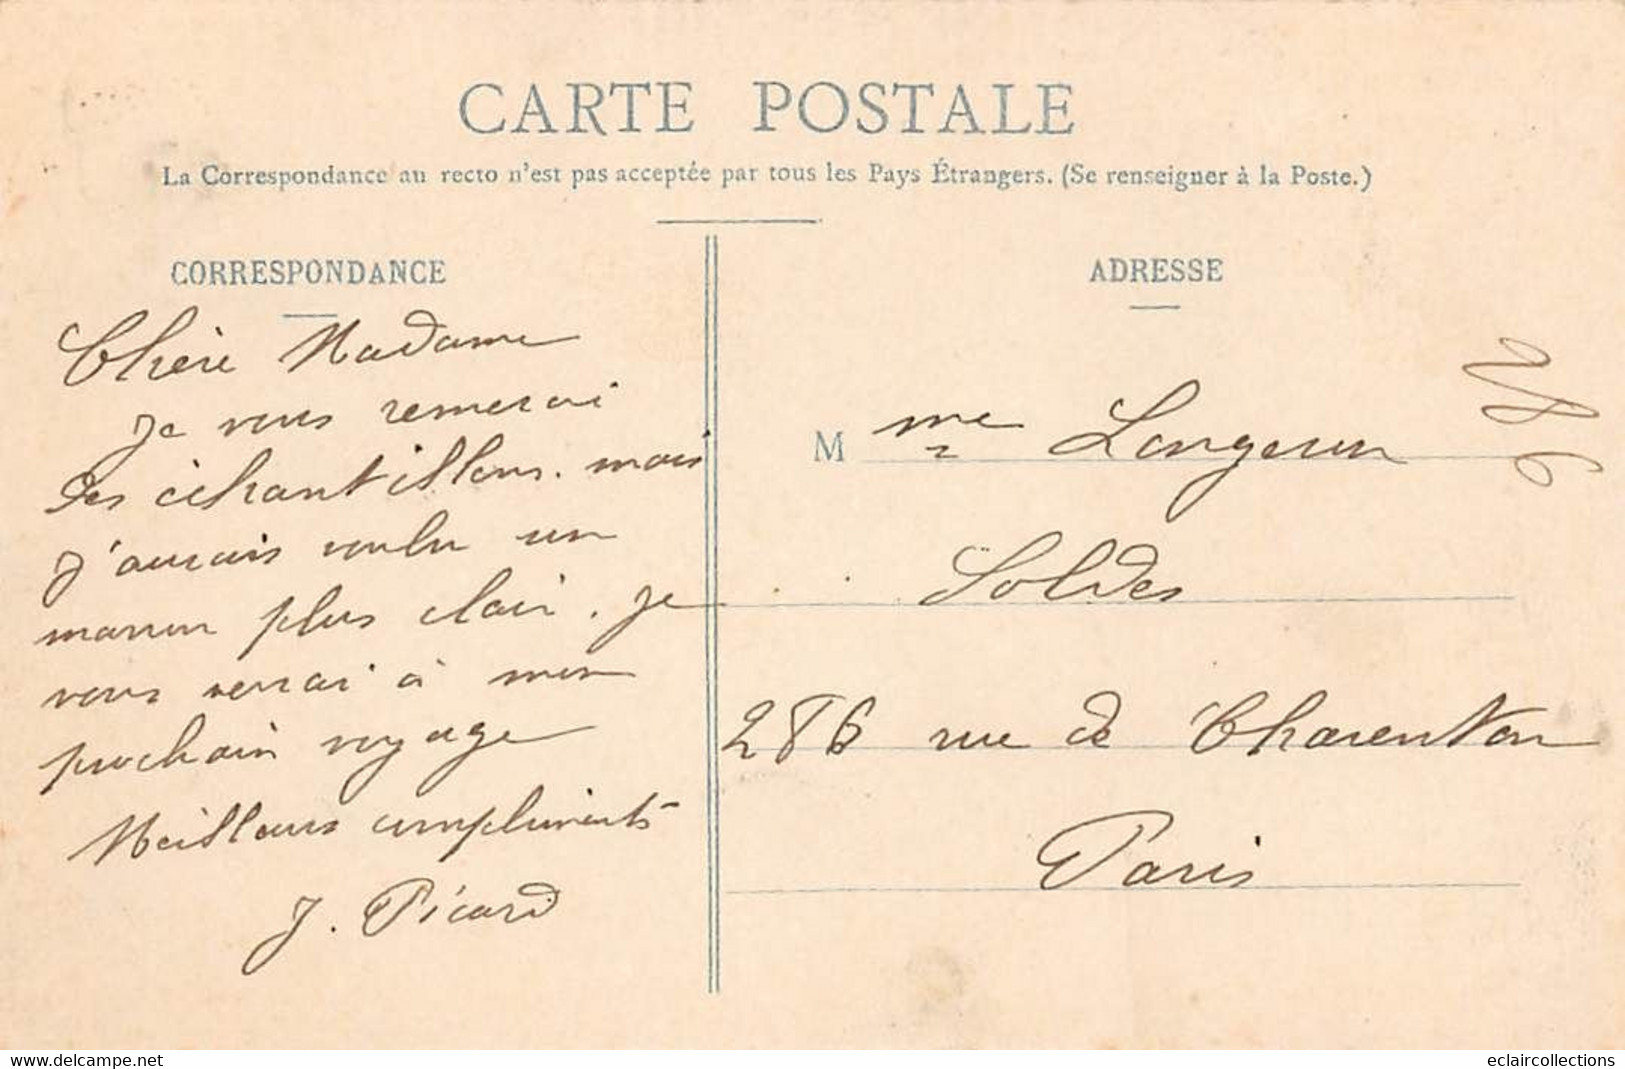 CARTE POSTALE
La Correspondance au recto n'est pas acceptée par tous les Pays Étrangers. (Se renseigner à la Poste.)
CORRESPONDANCE
Chère Madame
Je vous remerci
des échantillons. mais
j'aurais voulu un
marron plus clair. Je
vous verrai à mon
prochain voyage
Meilleurs compliments
J. Picard
ADRESSE
M me Longeron
Soldes
286 rue de Charenton
Paris
www.delcampe.net
eclaircollections